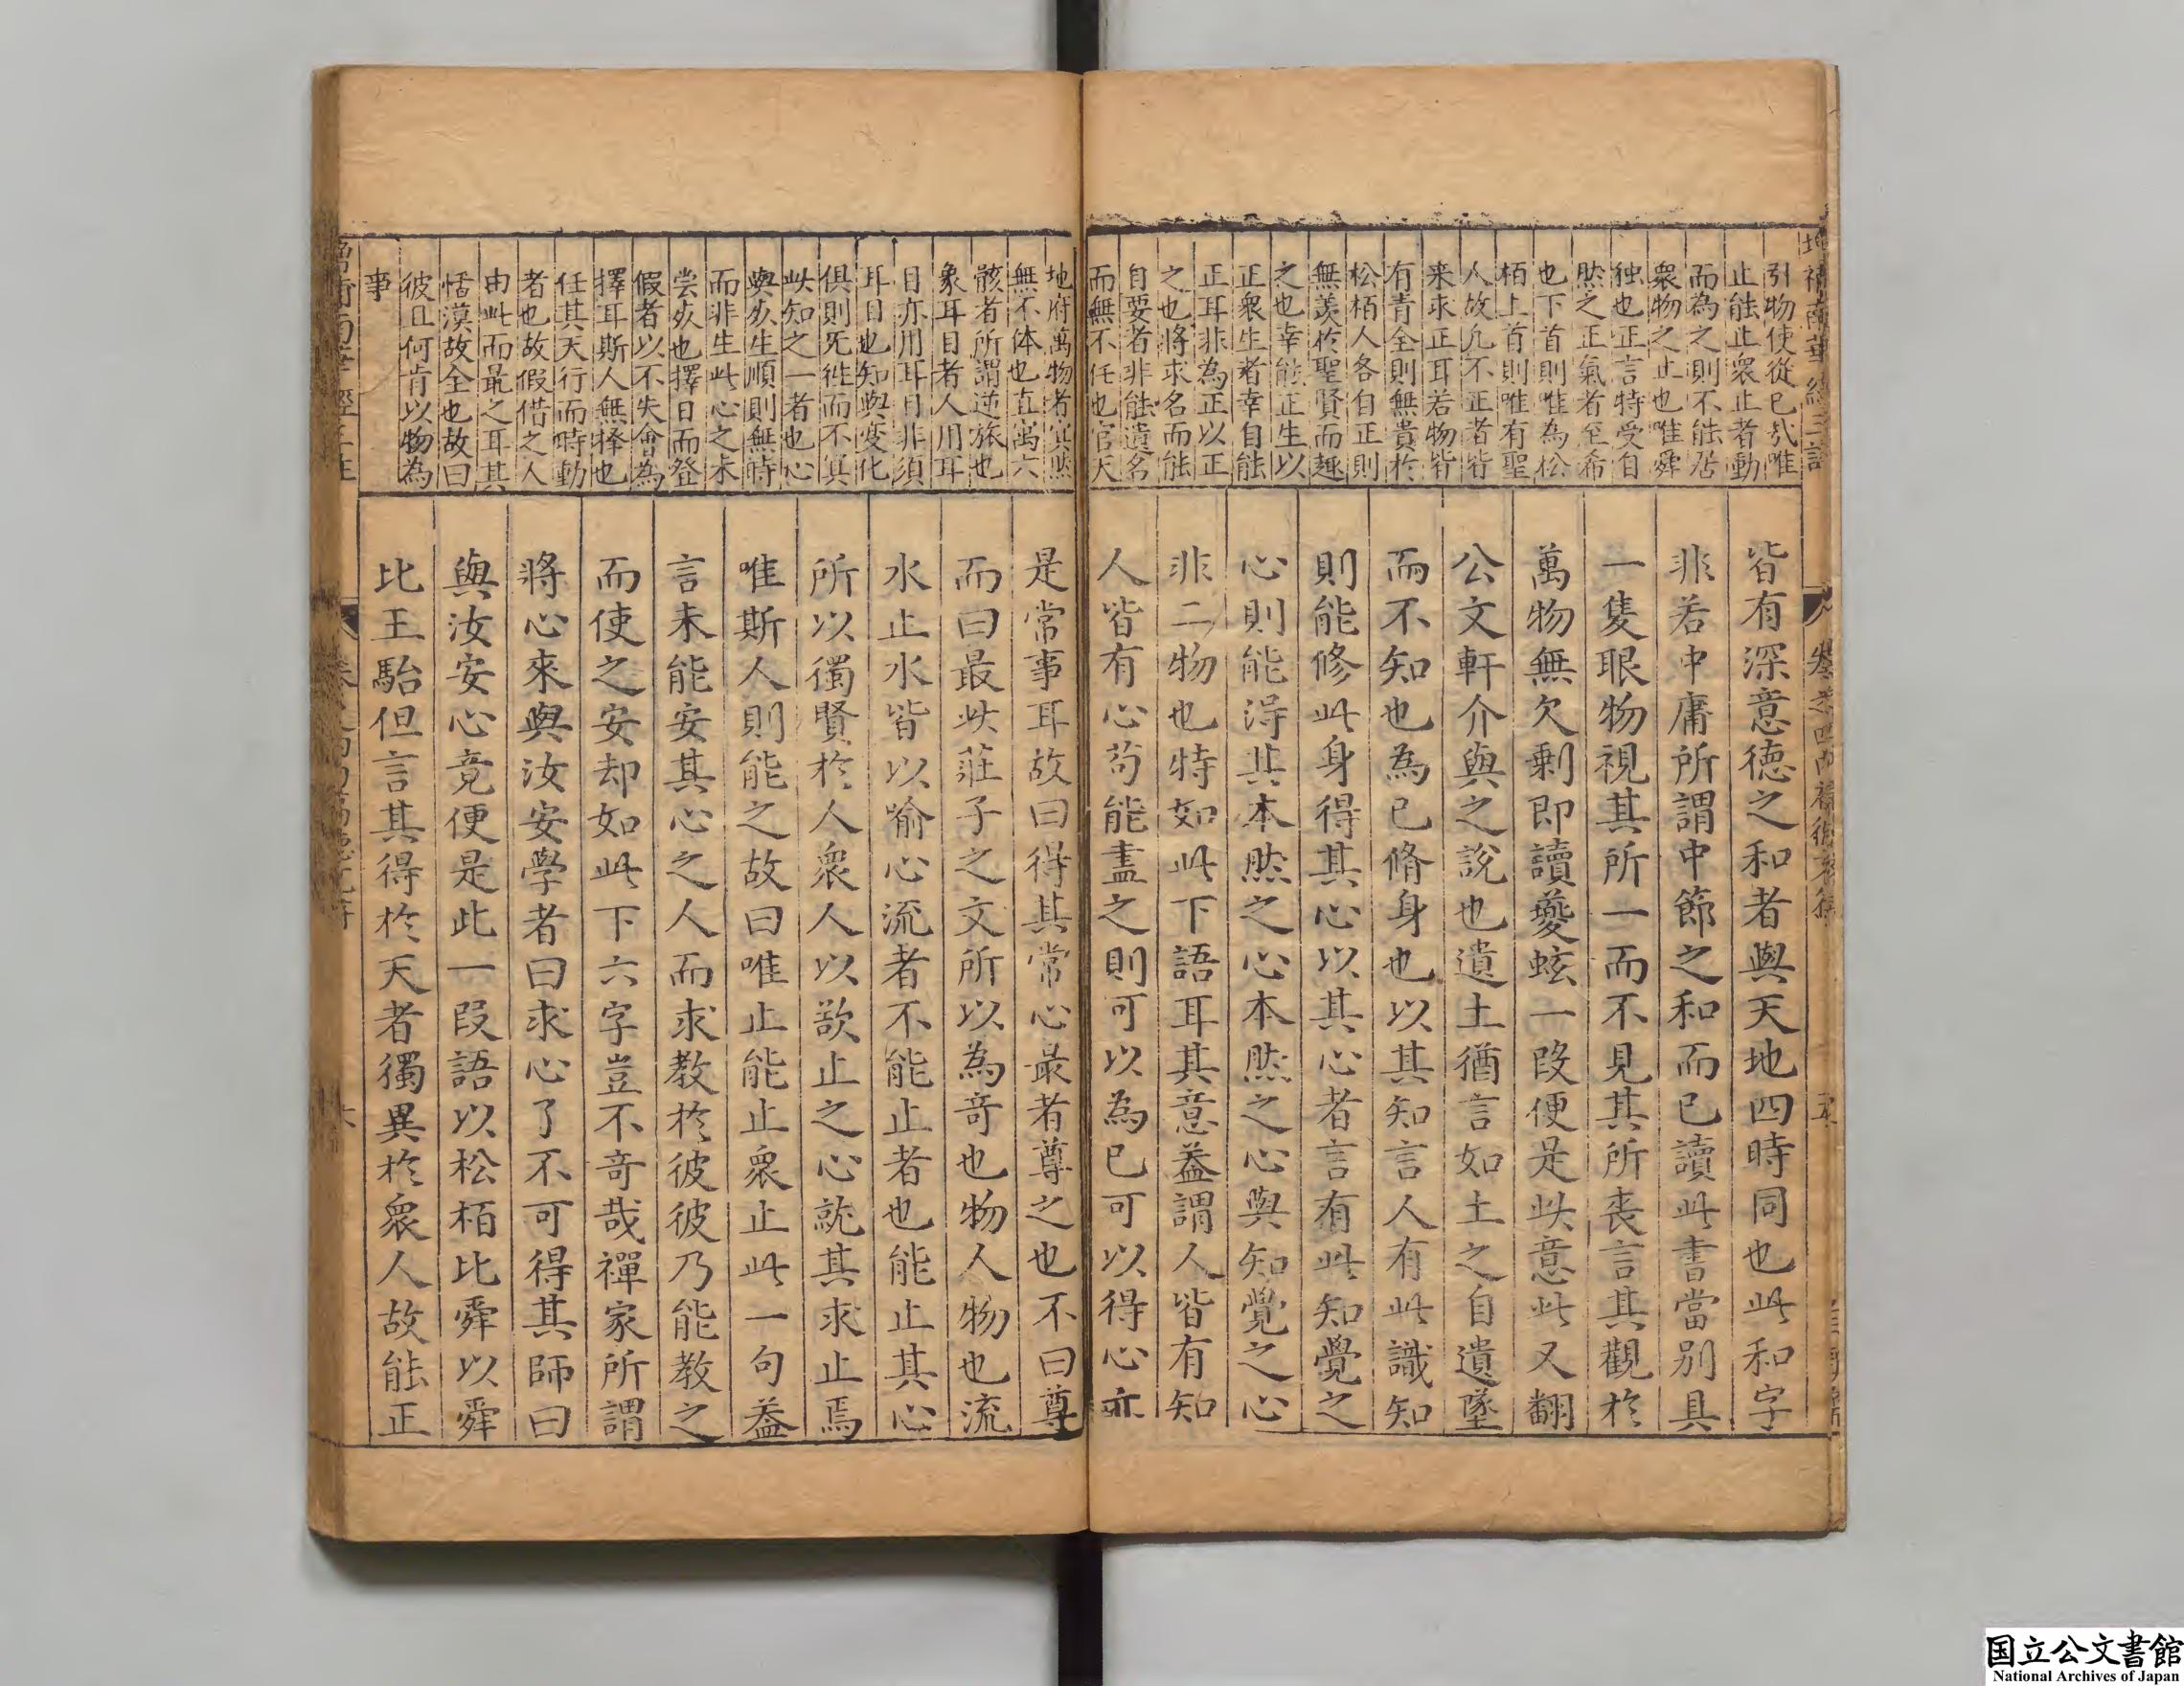 補南華經三註
引物使從已㢤唯
止能止衆止者動
而為之則不能居
衆物之止也唯舜
独也正言特受自
然之正氣者至希
也下首則唯為松
栢上首則唯有聖
人故凢不正者皆
来求正耳若物皆
有青全則無貴於
松栢人各自正則
無羡於聖賢而趣
之也幸能正生以
正衆生者幸自能
正耳非為正以正
之也將求名而能
自要者非能遺名
而無不任也官天
皆有深意德之和者與天地四時同也此和字
非若中庸所謂中節之和而已讀此書當別具
一隻眼物視其所一而不見其所喪言其觀於
萬物無欠剰即讀夔蚿一段便是此意此又翻
公文軒介與之說也遺土猶言如土之自遺墜
而不知也為已脩身也以其知言人有此識知
則能修此身得其心以其心者言有此知覺之
心則能淂其本然之心本然之心與知覺之心
非二物也特如此下語耳其意葢謂人皆有知
人皆有心苟能盡之則可以為已可以得心亦
地府萬物者冥然
無不体也直寓六
骸者所謂逆旅也
象耳目者人用耳
目亦用耳目非須
耳目也知與变化
俱則旡徃而不冥
此知之一者也心
與死生順則無時
而非生此心之未
尝死也擇日而登
假者以不失會為
擇耳斯人無擇也
任其天行而時動
者也故假借之人
由此而最之耳其
恬漠故全也故曰
彼且何肯以物為
事
是常事耳故曰得其常心最者尊之也不曰尊
而曰最此莊子之文所以為奇也物人物也流
水止水皆以喻心流者不能止者也能止其心
所以獨賢於人衆人以欲止之心就其求止焉
唯斯人則能之故曰唯止能止衆止此一句葢
言未能安其心之人而求教於彼彼乃能教之
而使之安却如此下六字豈不奇哉禪家所謂
將心來與汝安學者曰求心了不可得其師曰
與汝安心竟便是此一段語以松栢比舜以舜
比王駘但言其得於天者獨異於衆人故能正
国立公文書館
National Archives of Japan